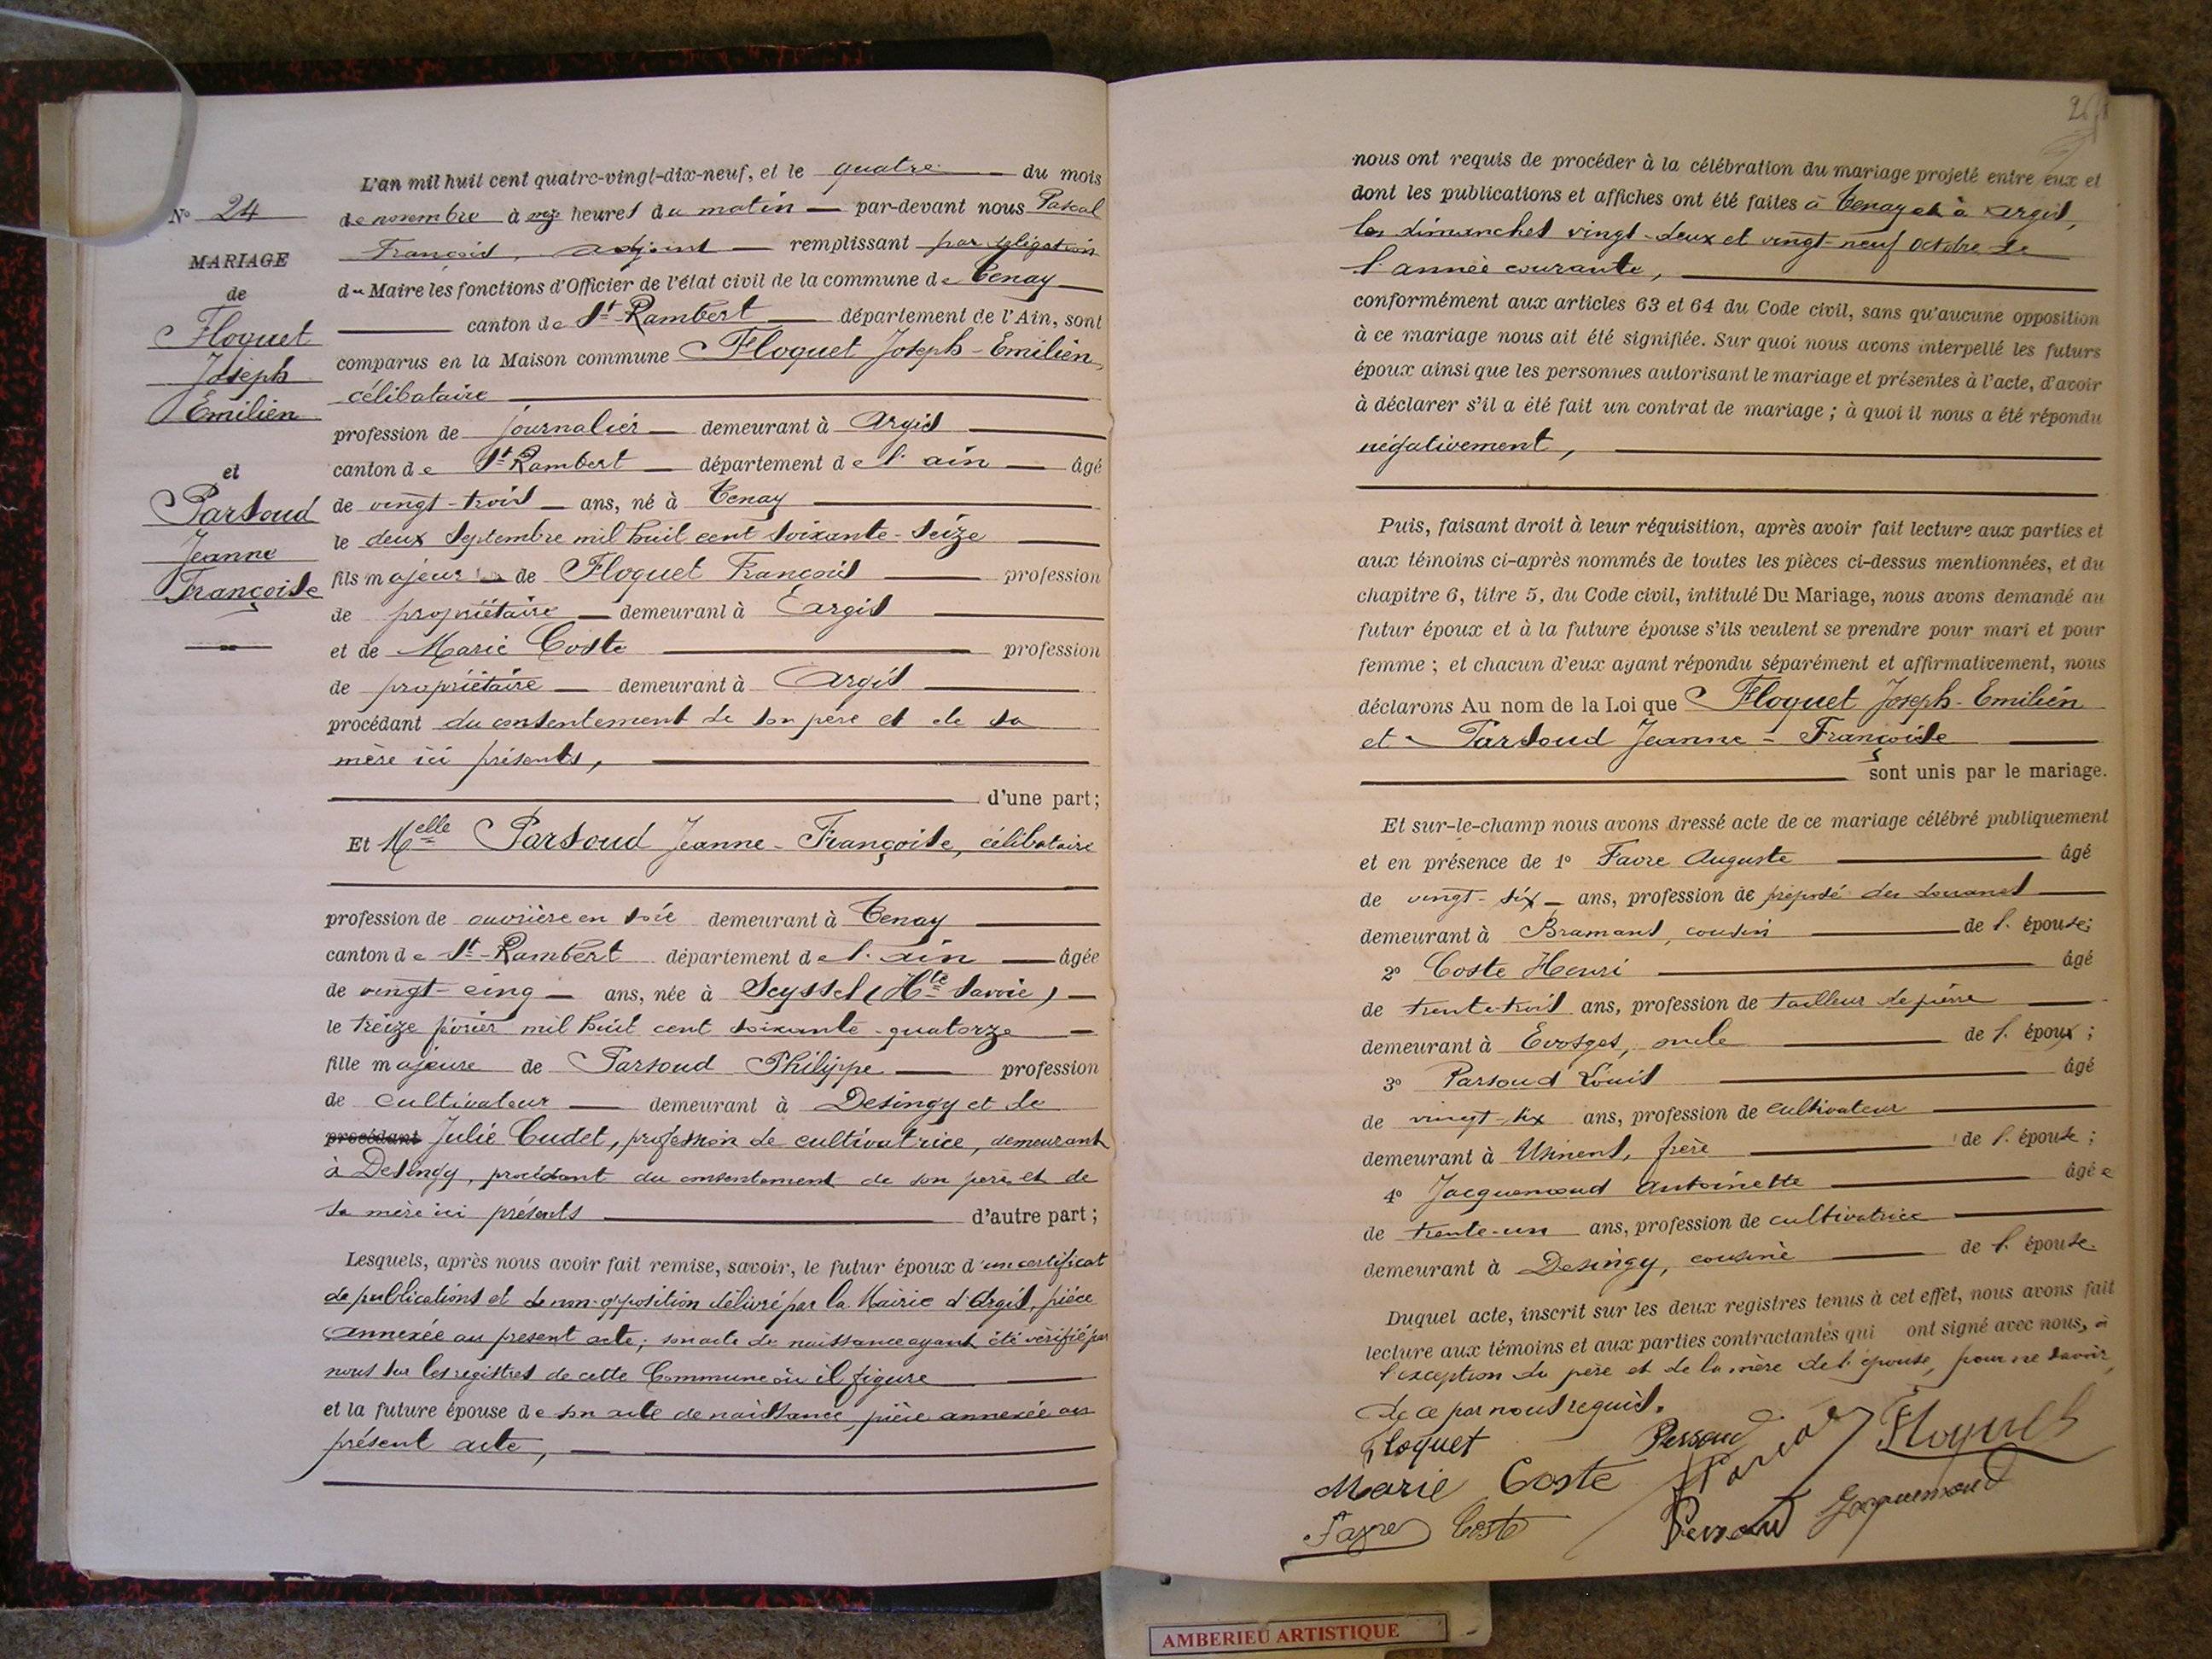 L'an mil huit cent quatre-vingt-dix-neuf, et le quatre du mois
N° 24
de novembre à heures du matin par-devant nous Pascal
François, adjoint remplissant par délégation
MARIAGE
du Maire les fonctions d'Officier de l'état civil de la commune de Tenay
de
canton de St Rambert département de l'Ain, sont
Floquet
comparus en la Maison commune Floquet Joseph-Emilien,
Joseph
célibataire
Emilien
profession de journalier demeurant à Argis
canton de St Rambert département de l'ain âgé
et
de vingt-trois ans, né à Tenay
Parsoud
le deux Septembre mil huit cent soixante-seize
Jeanne
fils majeur de Floquet François profession
Françoise
de propriétaire demeurant à Argis
et de Marie Coste profession
de propriétaire demeurant à Argis
procédant du consentement de son père et de sa
mère ici présents,
d'une part;
Et Melle Parsoud Jeanne-Françoise, célibataire
profession de ouvrière en soie demeurant à Tenay
canton de St-Rambert département de l'ain âgée
de vingt-cinq ans, née à Seyssel (Hte Savoie)
le treize février mil huit cent soixante-quatorze
fille majeure de Parsoud Philippe profession
de cultivateur demeurant à Desingy et de
procédant Julie Cudet, profession de cultivatrice, demeurant
à Desingy, procédant du consentement de son père et de
sa mère ici présents d'autre part;
Lesquels, après nous avoir fait remise, savoir, le futur époux d'un certificat
de publications et de non-opposition délivré par la Mairie d'Argis, pièce
annexée au présent acte; son acte de naissance ayant été vérifié par
nous sur les registres de cette Commune où il figure
et la future épouse de son acte de naissance, pièce annexée au
présent acte,
nous ont requis de procéder à la célébration du mariage projeté entre eux et
dont les publications et affiches ont été faites à Tenay et à Argis,
les dimanches vingt-deux et vingt-neuf octobre de
l'année courante,
conformément aux articles 63 et 64 du Code civil, sans qu'aucune opposition
à ce mariage nous ait été signifiée. Sur quoi nous avons interpellé les futurs
époux ainsi que les personnes autorisant le mariage et présentes à l'acte, d'avoir
à déclarer s'il a été fait un contrat de mariage; à quoi il nous a été répondu
négativement,
Puis, faisant droit à leur réquisition, après avoir fait lecture aux parties et
aux témoins ci-après nommés de toutes les pièces ci-dessus mentionnées, et du
chapitre 6, titre 5, du Code civil, intitulé Du Mariage, nous avons demandé au
futur époux et à la future épouse s'ils veulent se prendre pour mari et pour
femme; et chacun d'eux ayant répondu séparément et affirmativement, nous
déclarons Au nom de la Loi que Floquet Joseph-Emilien
et Parsoud Jeanne-Françoise
sont unis par le mariage.
Et sur-le-champ nous avons dressé acte de ce mariage célébré publiquement
et en présence de 1° Favre Auguste âgé
de vingt-six ans, profession de préposé des douanes
demeurant à Bramans, cousin de l'épouse;
2° Coste Henri âgé
de trente-trois ans, profession de tailleur de pierre
demeurant à Evosges, oncle de l'époux;
3° Parsoud Louis âgé
de vingt-six ans, profession de cultivateur
demeurant à Usinens, frère de l'épouse;
4° Jacquemoud Antoinette âgée
de trente-un ans, profession de cultivatrice
demeurant à Desingy, cousine de l'épouse
Duquel acte, inscrit sur les deux registres tenus à cet effet, nous avons fait
lecture aux témoins et aux parties contractantes qui ont signé avec nous, à
l'exception du père et de la mère de l'épouse, pour ne savoir,
de ce par nous requis.
Floquet Persoud Pascal Floquet
Marie Coste
Favre Coste Persoud Jacquemoud
AMBERIEU ARTISTIQUE